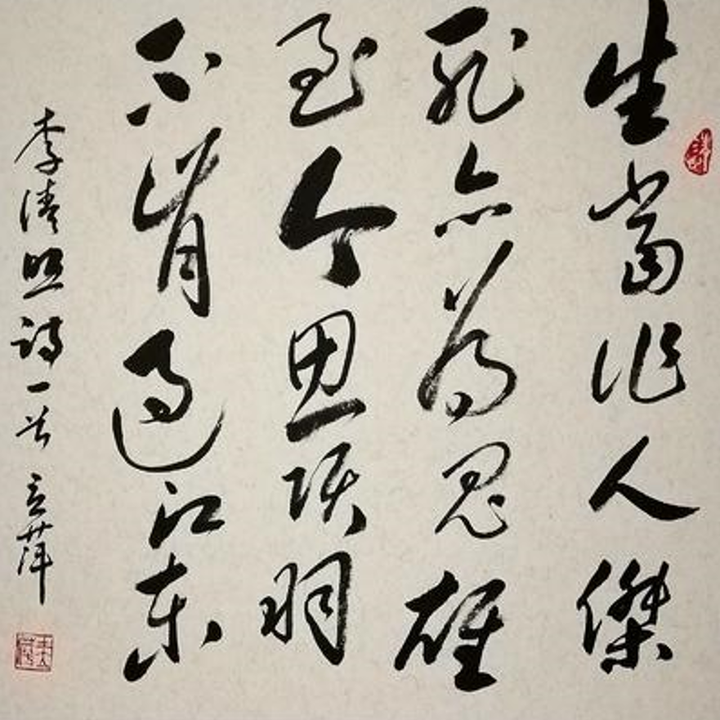 生當作人傑
死亦為鬼雄
至今思項羽
不肯過江東
李清照詩一首 立萍